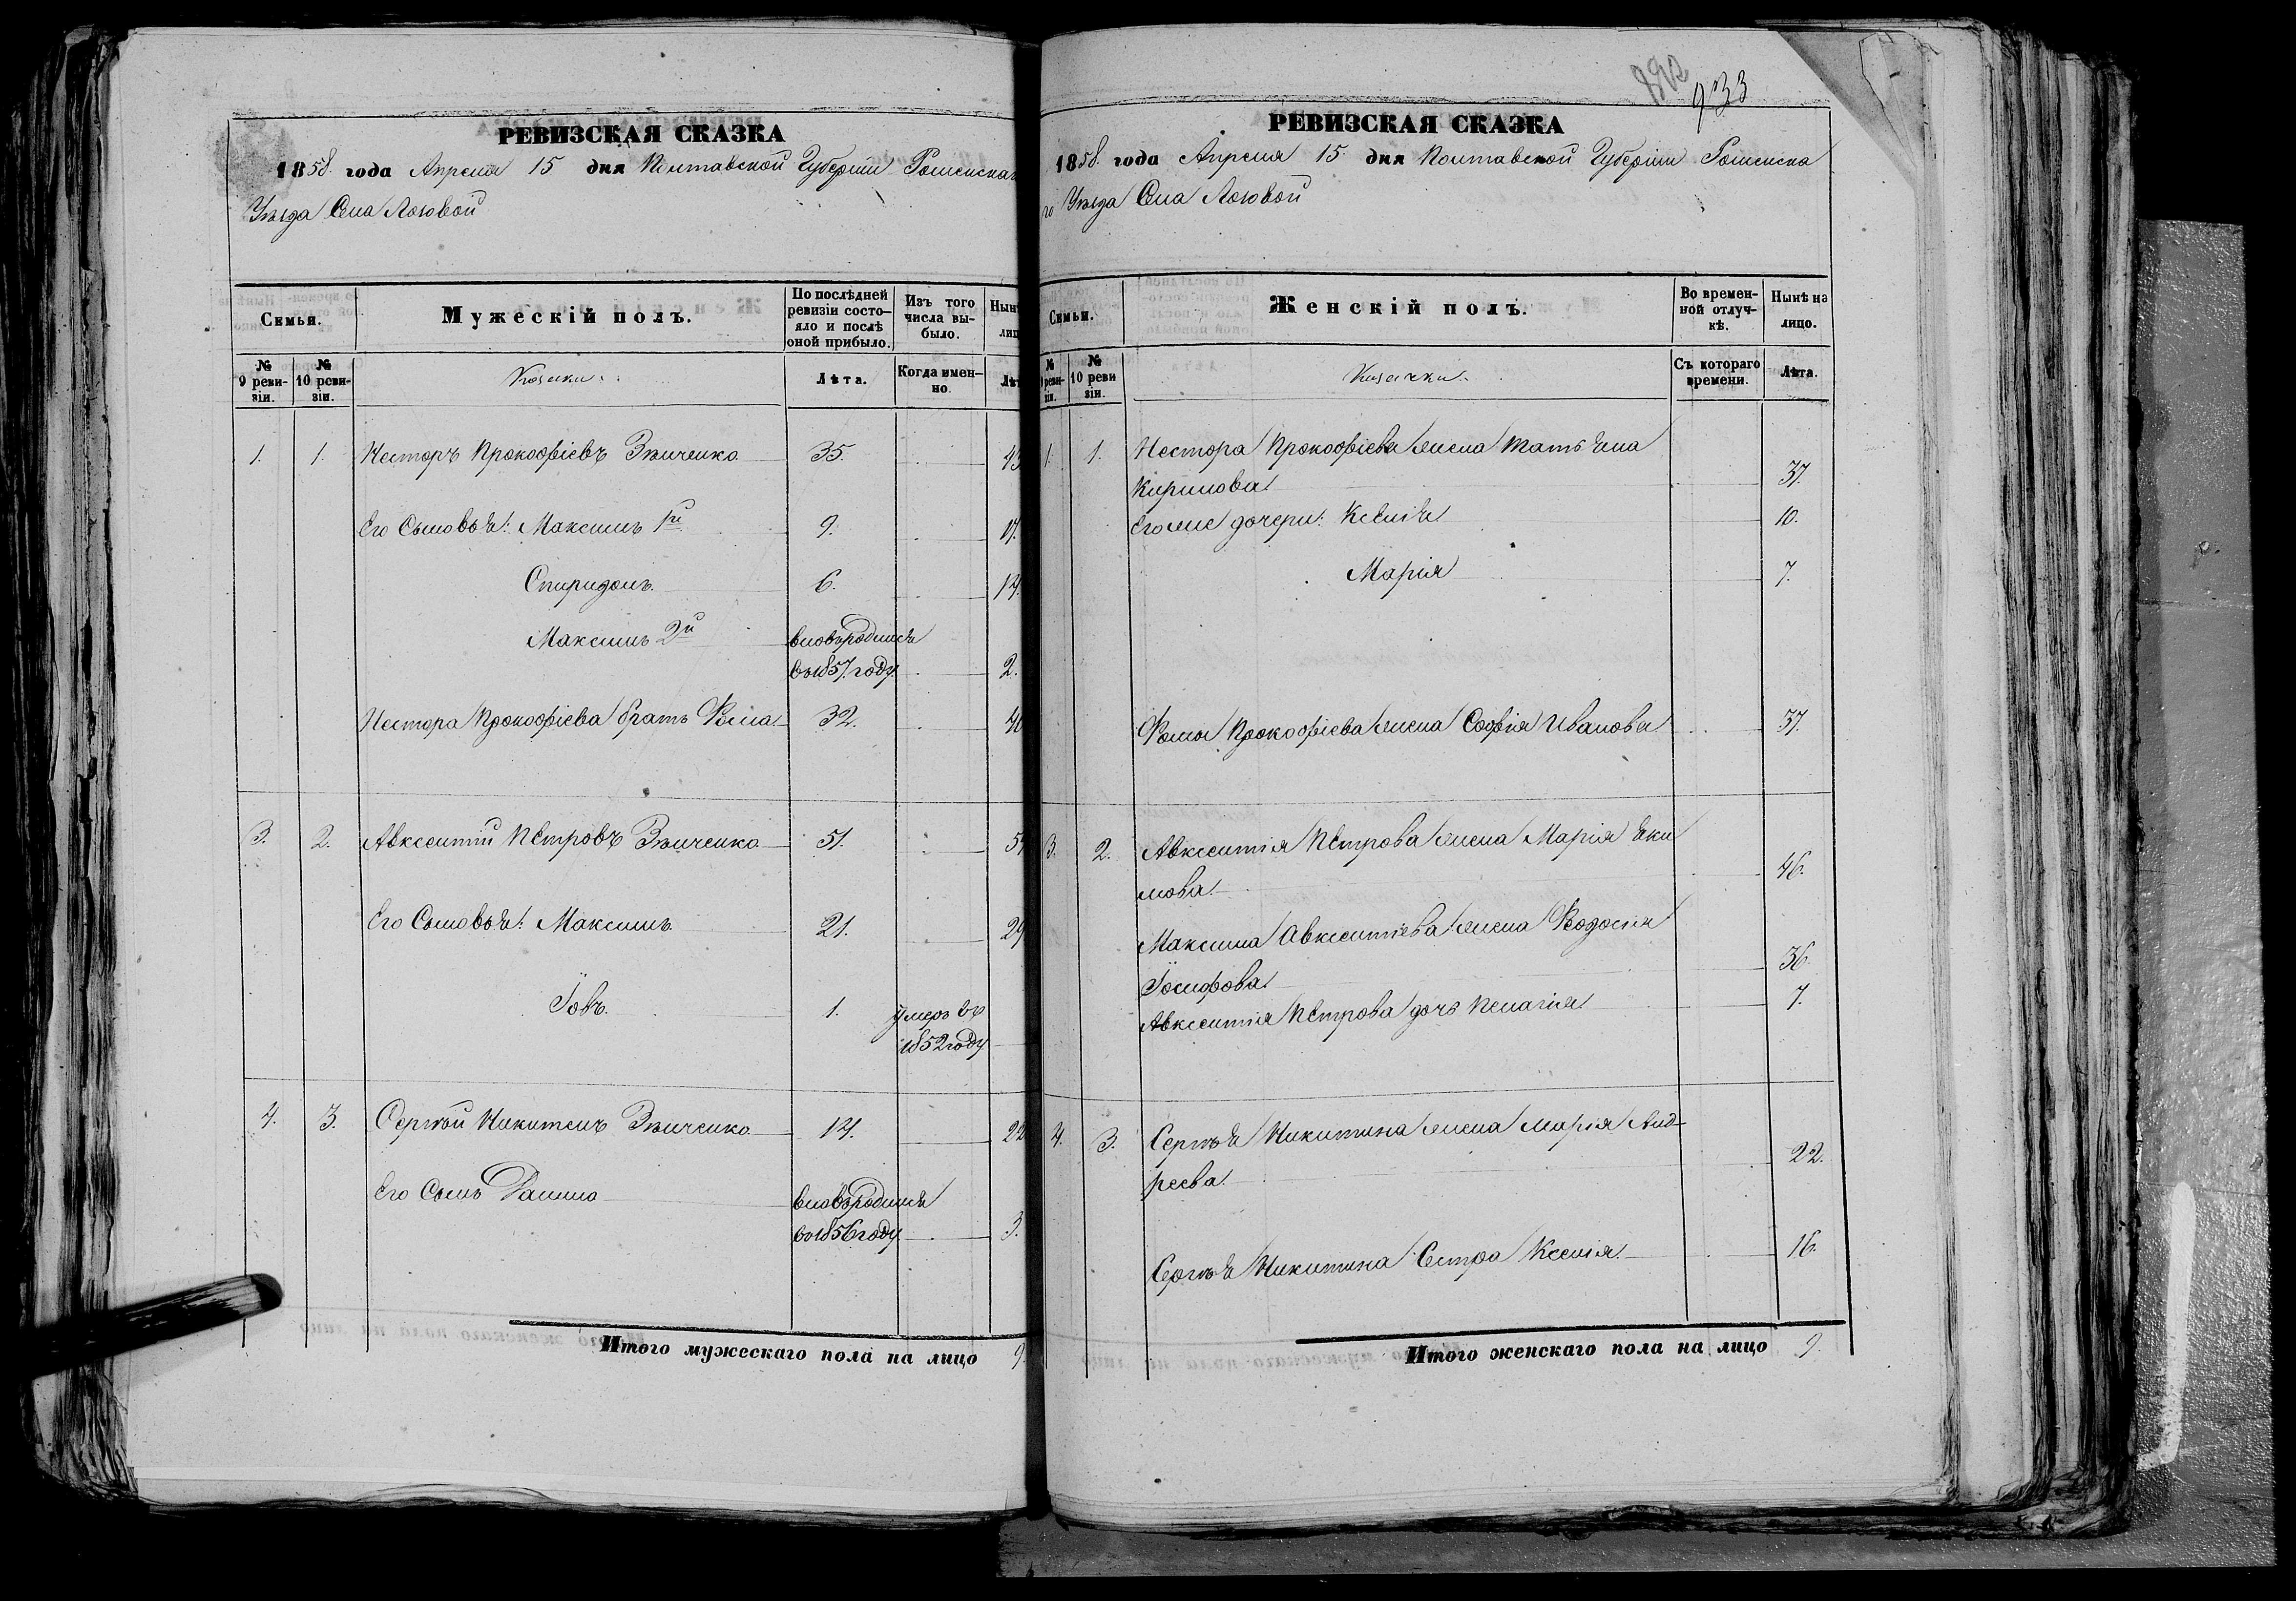 933
РЕВИЗСКАЯ СКАЗКА
1858 года Апреля 15 дня Полтавской Губернии Роменскаго
Уѣзда Села Лозовой
Семьи.
Мужескій полъ.
По послѣдней ревизіи состояло и послѣ оной прибыло.
Изъ того числа выбыло.
Нынѣ
лиц
№ 9 ревизіи.
№ 10 ревизіи.
Козаки.
Лѣта.
Когда именно.
Лѣт
1. 1. Несторъ Прокофіевъ Зѣнченко 35. 43
Его Сыновья: Максимъ 1й 9. 17.
Спиридонъ. 6. 14.
Максимъ 2й вновьродился
въ 1857 году. 2.
Нестора Прокофіева братъ Фома 32. 40
3. 2. Авксентий Петровъ Зѣнченко 51. 59
Его Сыновья: Максимъ 21. 29
Іовъ. 1. Умеръ въ
1852 году
4. 3. Сергѣй Никитенъ Зѣнченко 14. 22
Его Сынъ Данило вновьродился
въ 1856 году. 3.
Итого мужескаго пола на лицо 9.
РЕВИЗСКАЯ СКАЗКА
1858 года Апреля 15 дня Полтавской Губерніи Роменска
го Уѣзда Села Лозовой
Семьи.
Женскій полъ.
Во временной отлучкѣ.
Нынѣ на лицо.
№ 9 ревизіи.
№ 10 ревизіи.
Козачки.
Съ котораго времени.
Лѣта.
1. 1. Нестора Прокофіева жена Татьяна
Кирилова 37.
Его же дочери: Ксенія 10.
Марія 7.
Фомы Прокофіева жена Софія Иванова 37.
3. 2. Авксентія Петрова жена Марія Яки
мова 46.
Максима Авксентіева жена Феодосія
Іосифова 36.
Авксентія Петрова дочь Пелагія 7.
4. 3. Сергѣя Никитина жена Марія Анд-
реева 22.
Сергѣя Никитина Сестра Ксенія 16.
Итого женскаго пола на лицо 9.